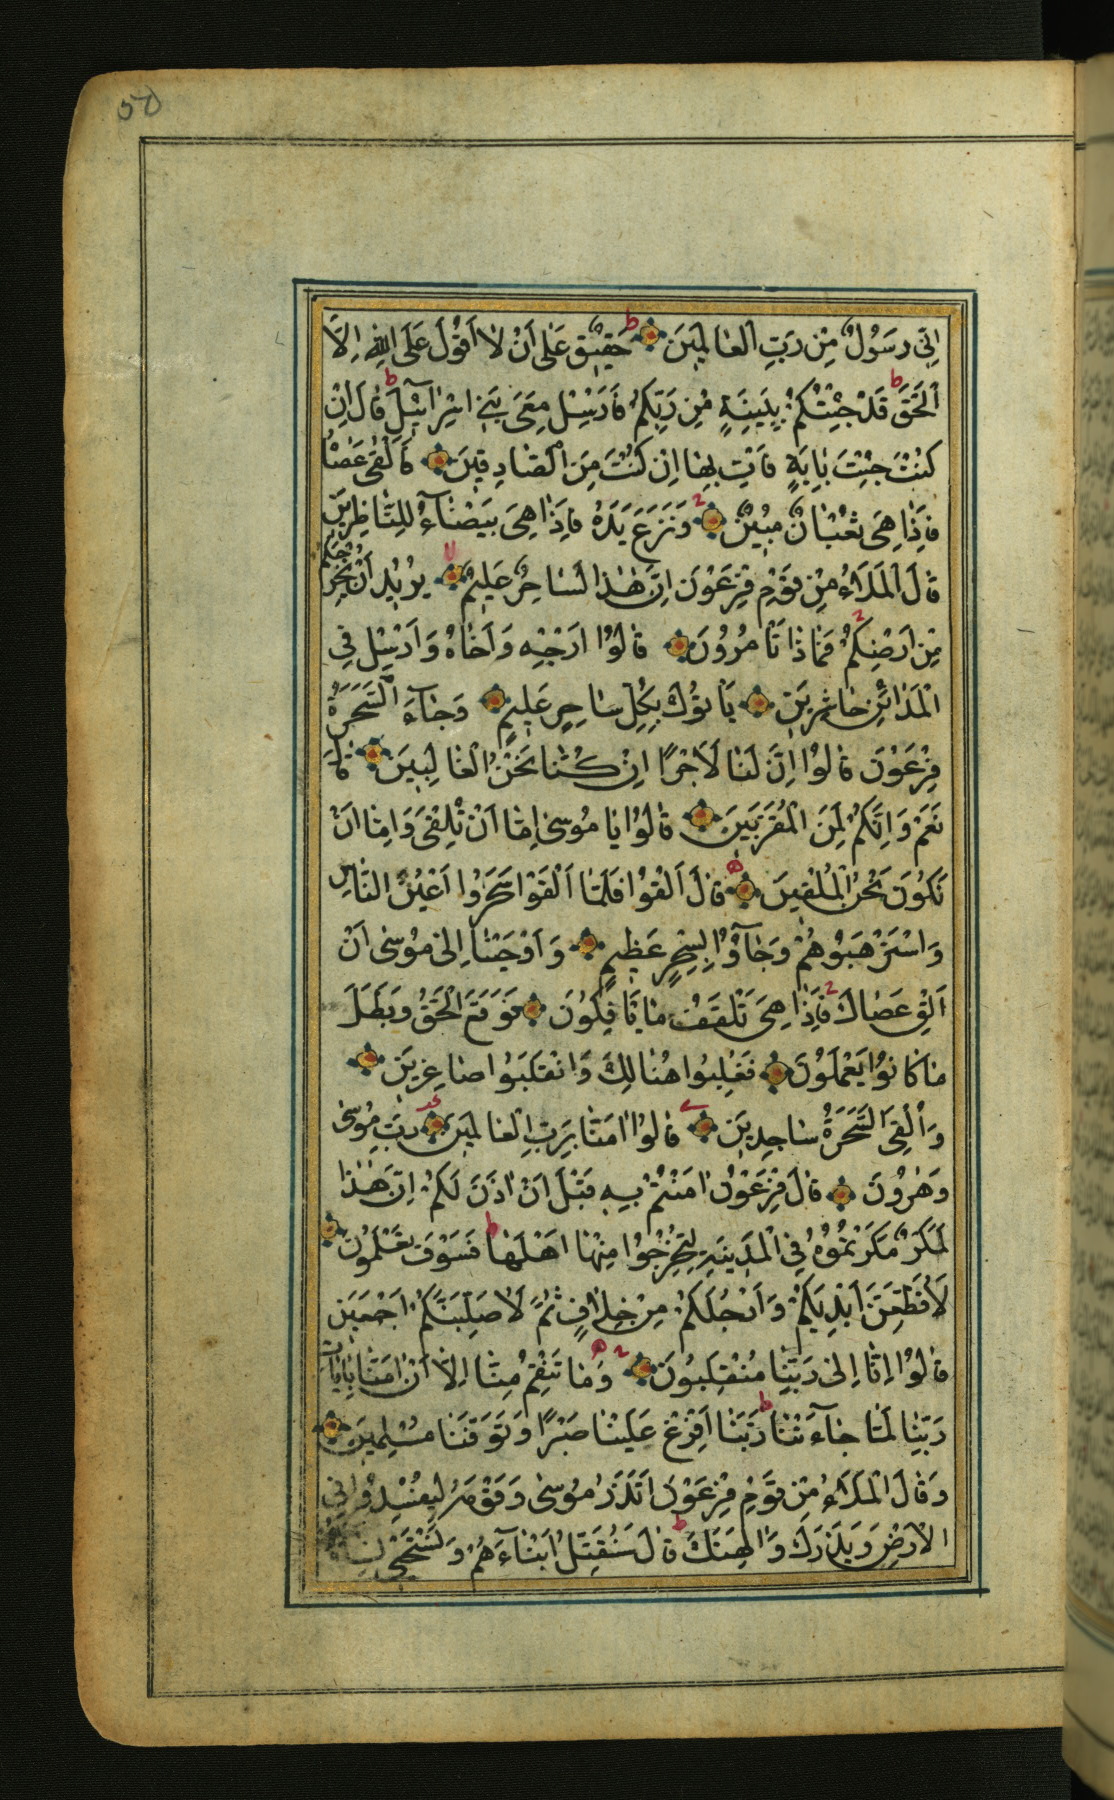 50
اِنّٖي رَسُوْلٌ مِنْ رَبِّ الْعٰالَمٖينَ ط حَقٖيقٌ عَلٰى اَنْ لٰا اَقُوْلَ عَلَى اللّٰهِ اِلَّا
الْحَقَّ ط قَدْ جِئْتُكُمْ بِبَيِّنَةٍ مِنْ رَبِّكُمْ فَاَرْسِلْ مَعِيَ بَنٖي اِسْرٰٓائٖيلَ ط قٰالَ اِنْ
كُنْتَ جِئْتَ بِاٰيَةٍ فَاْتِ بِهٰا اِنْ كُنْتَ مِنَ الصّٰادِقٖينَ فَاَلْقٰى عَصٰاهُ
فَاِذٰا هِيَ ثُعْبٰانٌ مُبٖينٌ ۲ وَنَزَعَ يَدَهُ فَاِذٰا هِيَ بَيْضٰٓاءُ لِلنّٰاظِرٖينَ
قٰالَ الْمَلَاُ مِنْ قَوْمِ فِرْعَوْنَ اِنَّ هٰذٰا لَسٰاحِرٌ عَلٖيمٌ لا يُرٖيدُ اَنْ يُخْرِجَكُمْ
مِنْ اَرْضِكُمْ ۲ فَمٰاذٰا تَاْمُرُوْنَ قٰالُوْٓا اَرْجِهْ وَاَخٰاهُ وَاَرْسِلْ فِي
الْمَدٰائِنِ حٰاشِرٖينَ يَاْتُوْكَ بِكُلِّ سٰاحِرٍ عَلٖيمٍ وَجٰٓاءَ السَّحَرَةُ
فِرْعَوْنَ قٰالُوْا اِنَّ لَنٰا لَاَجْرًا اِنْ كُنّٰا نَحْنُ الْغٰالِبٖينَ قٰالَ
نَعَمْ وَاِنَّكُمْ لَمِنَ الْمُقَرَّبٖينَ قٰالُوْا يٰا مُوسٰى اِمّٰا اَنْ تُلْقِيَ وَاِمّٰا اَنْ
نَكُوْنَ نَحْنُ الْمُلْقٖينَ ه قٰالَ اَلْقُوْا فَلَمّٰا اَلْقَوْا سَحَرُوْا اَعْيُنَ النّٰاسِ
وَاسْتَرْهَبُوْهُمْ وَجٰٓاؤُوْا بِسِحْرٍ عَظٖيمٍ وَاَوْحَيْنٰا اِلٰى مُوسٰى اَنْ
اَلْقِ عَصٰاكَ ۲ فَاِذٰا هِيَ تَلْقَفُ مٰا يَاْفِكُوْنَ فَوَقَعَ الْحَقُّ وَبَطَلَ
مٰا كٰانُوْا يَعْمَلُوْنَ فَغُلِبُوْا هُنٰالِكَ وَانْقَلَبُوْا صٰاغِرٖينَ
وَاُلْقِيَ السَّحَرَةُ سٰاجِدٖينَ قٰالُوْا اٰمَنّٰا بِرَبِّ الْعٰالَمٖينَ رَبِّ مُوسٰى
وَهٰرُوْنَ قٰالَ فِرْعَوْنُ اٰمَنْتُمْ بِهٖ قَبْلَ اَنْ اٰذَنَ لَكُمْ اِنَّ هٰذٰا
لَمَكْرٌ مَكَرْتُمُوْهُ فِي الْمَدٖينَةِ لِتُخْرِجُوْا مِنْهٰا اَهْلَهٰا ط فَسَوْفَ تَعْلَمُوْنَ
لَاُقَطِّعَنَّ اَيْدِيَكُمْ وَاَرْجُلَكُمْ مِنْ خِلٰافٍ ثُمَّ لَاُصَلِّبَنَّكُمْ اَجْمَعٖينَ
قٰالُوْا اِنّٰا اِلٰى رَبِّنٰا مُنْقَلِبُوْنَ ۲ ه وَمٰا تَنْقِمُ مِنّٰا اِلّٰا اَنْ اٰمَنّٰا بِاٰيٰاتِ
رَبِّنٰا لَمّٰا جٰٓاءَتْنٰا ط رَبَّنٰا اَفْرِغْ عَلَيْنٰا صَبْرًا وَتَوَفَّنٰا مُسْلِمٖينَ
وَقٰالَ الْمَلَاُ مِنْ قَوْمِ فِرْعَوْنَ اَتَذَرُ مُوسٰى وَقَوْمَهُ لِيُفْسِدُوْا فِي
الْاَرْضِ وَيَذَرَكَ وَاٰلِهَتَكَ ط قٰالَ سَنُقَتِّلُ اَبْنٰٓاءَهُمْ وَنَسْتَحْيٖي